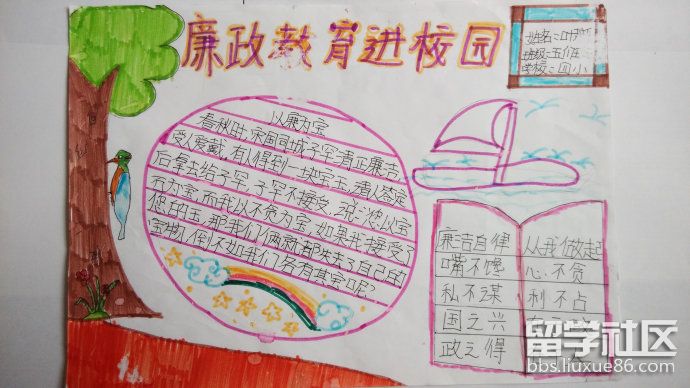 廉政教育进校园
姓名:叶
班级:五
学校:四小
以廉为宝
春秋时,宋国司城子罕清正廉洁,
受人爱戴,有人得到一块宝玉,请人鉴定
后拿去给子罕,子罕不接受,说:"您以宝
石为宝,而我以不贪为宝,如果我接受了
您的玉,那我们俩就都失去了自己的
宝物,倒不如我们各有其宝呢?
廉洁自律
嘴不馋
私不谋
国之兴
政之得
从我做起
心不贪
利不占
留学社区
bbs.liuxue86.com